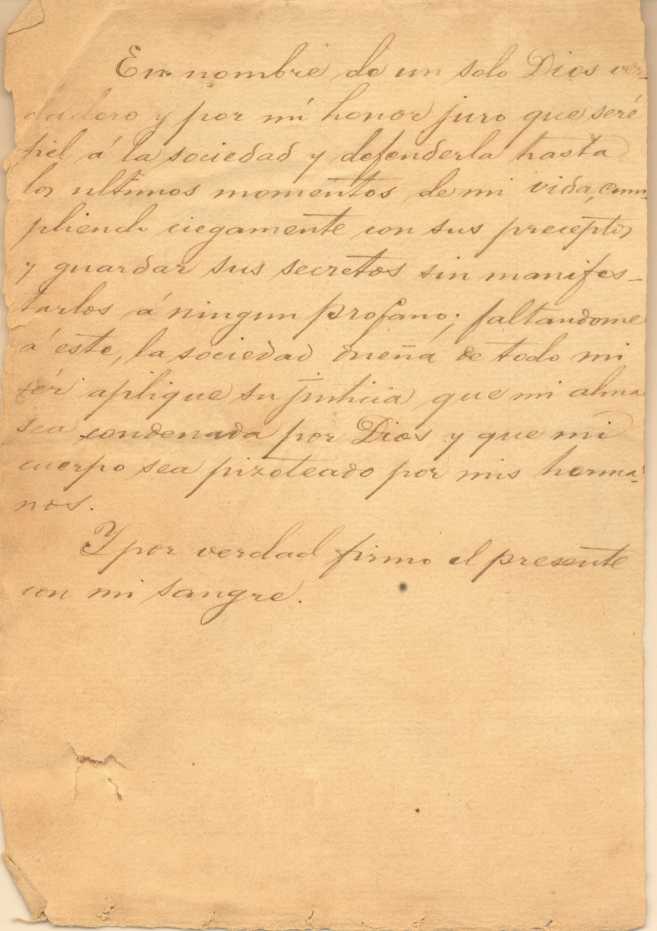 En nombre de un solo Dios ver-
dadero y por mi honor juro que seré
fiel á la sociedad y defenderla hasta
los ultimos momentos de mi vida, cum-
pliendo ciegamente con sus preceptos
y guardar sus secretos sin manifes-
tarlos á ningun profano; faltandome
á esto, la sociedad dueña de todo mi
sér aplique su justicia que mi alma
sea condenada por Dios y que mi
cuerpo sea pizoteado por mis herma-
nos.
Y por verdad firmo el presente
con mi sangre.